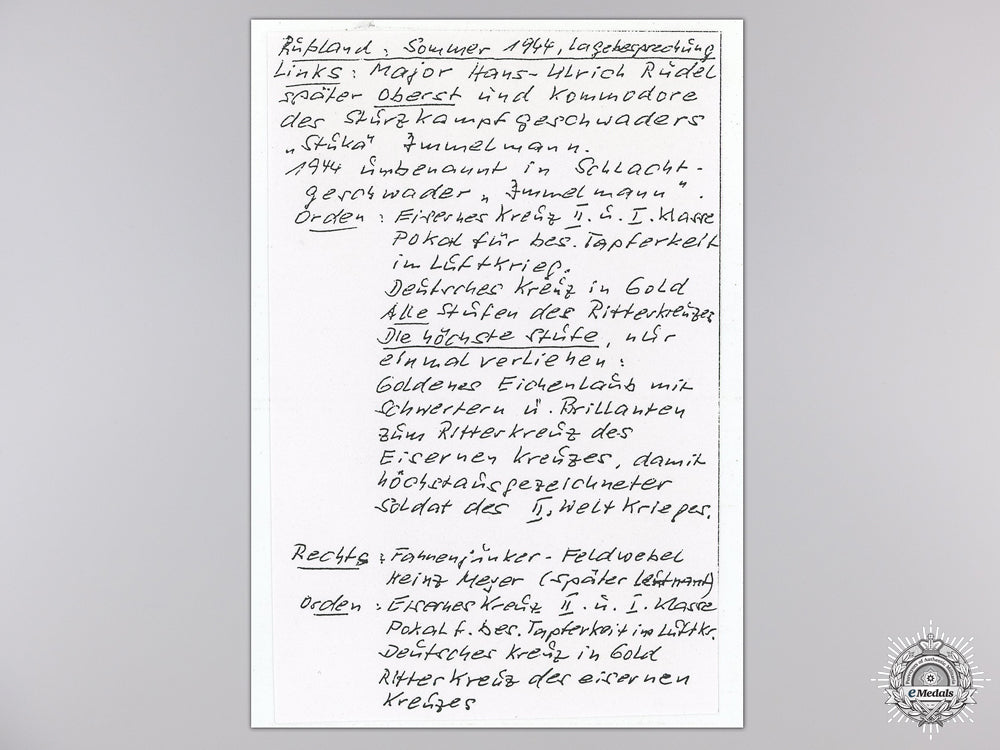 Rußland: Sommer 1944, Lagebesprechung
Links: Major Hans-Ulrich Rudel
später Oberst und Kommodore
des Sturzkampfgeschwaders
„Stuka" Immelmann.
1944 umbenannt in Schlacht-
geschwader „Immelmann".
Orden: Eisernes Kreuz II. u. I. Klasse
Pokal für bes. Tapferkeit
im Luftkrieg.
Deutsches Kreuz in Gold
Alle Stufen des Ritterkreuzes
Die höchste Stufe, nur
einmal verliehen:
Goldenes Eichenlaub mit
Schwertern u. Brillanten
zum Ritterkreuz des
Eisernen Kreuzes, damit
höchstausgezeichneter
Soldat des II. Weltkrieges.
Rechts: Fahnenjunker-Feldwebel
Heinz Meyer (später Leutnant)
Orden: Eisernes Kreuz II. u. I. Klasse
Pokal f. bes. Tapferkeit im Luftkr.
Deutsches Kreuz in Gold
Ritterkreuz des eisernen
Kreuzes
eMedals